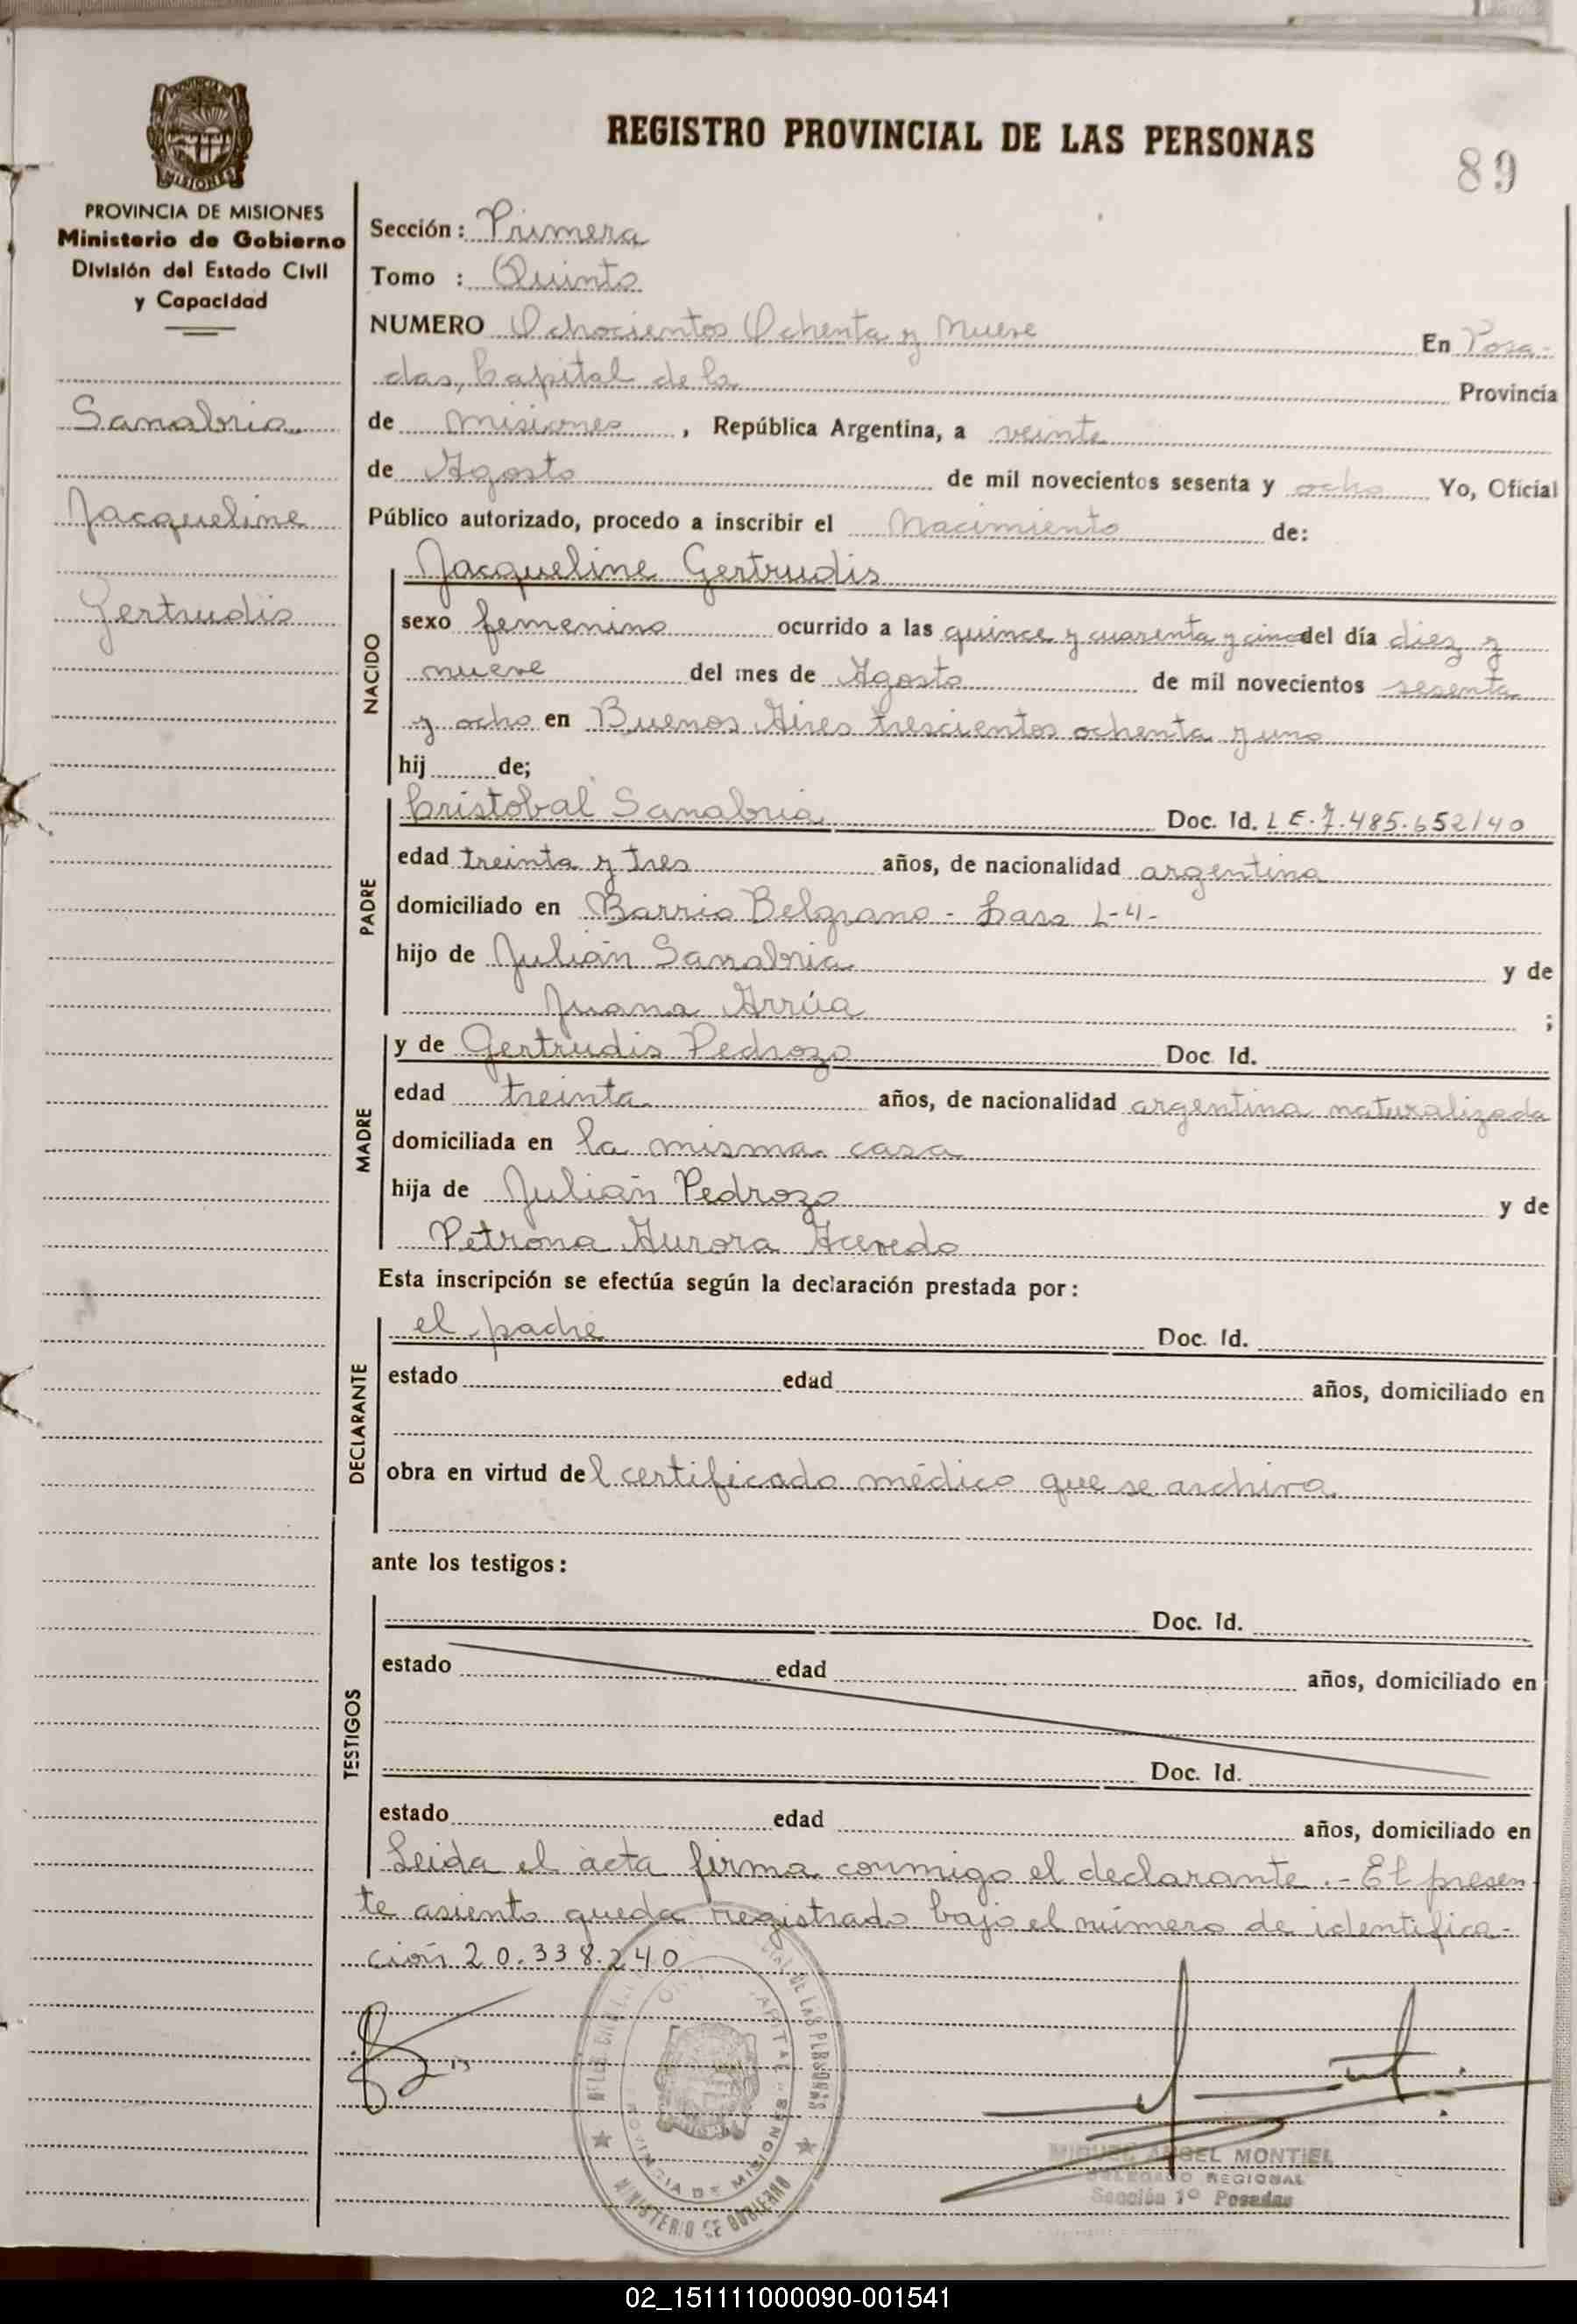 REGISTRO PROVINCIAL DE LAS PERSONAS
89
MISIONES
PROVINCIA DE MISIONES
Ministerio de Gobierno
División del Estado Civil
y Capacidad
Sanabria
Jacqueline
Gertrudis
Sección : Primera
Tomo : Quinto
NUMERO Ochocientos Ochenta y Nueve En Posa-
das, Capital de la Provincia
de Misiones , República Argentina, a veinte
de Agosto de mil novecientos sesenta y ocho Yo, Oficial
Público autorizado, procedo a inscribir el Nacimiento de:
NACIDO
Jacqueline Gertrudis
sexo femenino ocurrido a las quince y cuarenta y cinco del día diez y
nueve del mes de Agosto de mil novecientos sesenta
y ocho en Buenos Aires trescientos ochenta y uno
hij de;
PADRE
Cristobal Sanabria Doc. Id. L E. 7.485.652/40
edad treinta y tres años, de nacionalidad argentina
domiciliado en Barrio Belgrano - Casa L-4-
hijo de Julián Sanabria y de
Juana Arrúa ;
MADRE
y de Gertrudis Pedrozo Doc. Id.
edad treinta años, de nacionalidad argentina naturalizada
domiciliada en la misma casa
hija de Julián Pedrozo y de
Petrona Aurora Acevedo
Esta inscripción se efectúa según la declaración prestada por :
DECLARANTE
el padre Doc. Id.
estado edad años, domiciliado en
obra en virtud del certificado médico que se archiva
ante los testigos :
TESTIGOS
Doc. Id.
estado edad años, domiciliado en
Doc. Id.
estado edad años, domiciliado en
Leida el acta firma conmigo el declarante .- El presen
te asiento queda registrado bajo el número de identifica-
ción 20.338.240
DE LAS PERSONAS
PROVINCIA DE MISIONES
MINISTERIO DE GOBIERNO
MIGUEL ANGEL MONTIEL
DELEGADO REGIONAL
Sección 1º Posadas
02_151111000090-001541